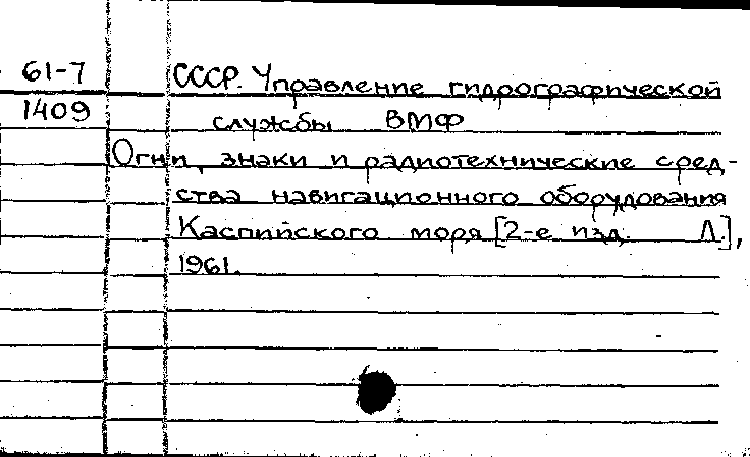 61-7
СССР. Управление гидрографической
1409
службы ВМФ
Огни, знаки и радиотехнические сред-
ства навигационного оборудования
Каспийского моря [2-е изд. Л.],
1961.